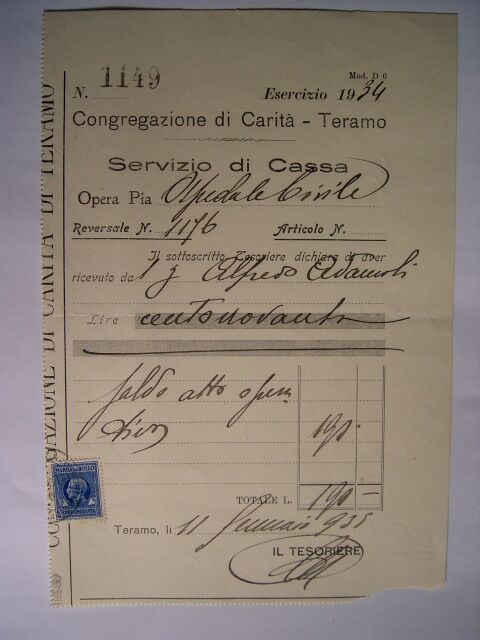 Mod. D 6
N. 1149 Esercizio 1934
Congregazione di Carità - Teramo
Servizio di Cassa
Opera Pia Ospedale Civile
Reversale N. 1176 Articolo N.
Il sottoscritto Tesoriere dichiara di aver
ricevuto da Alfredo Adamoli
Lire centonovanta
saldo atto
190
TOTALE L. 190 —
Teramo, li 11 Gennaio 935
IL TESORIERE
CONGREGAZIONE DI CARITÀ DI TERAMO
MARCA DA BOLLO